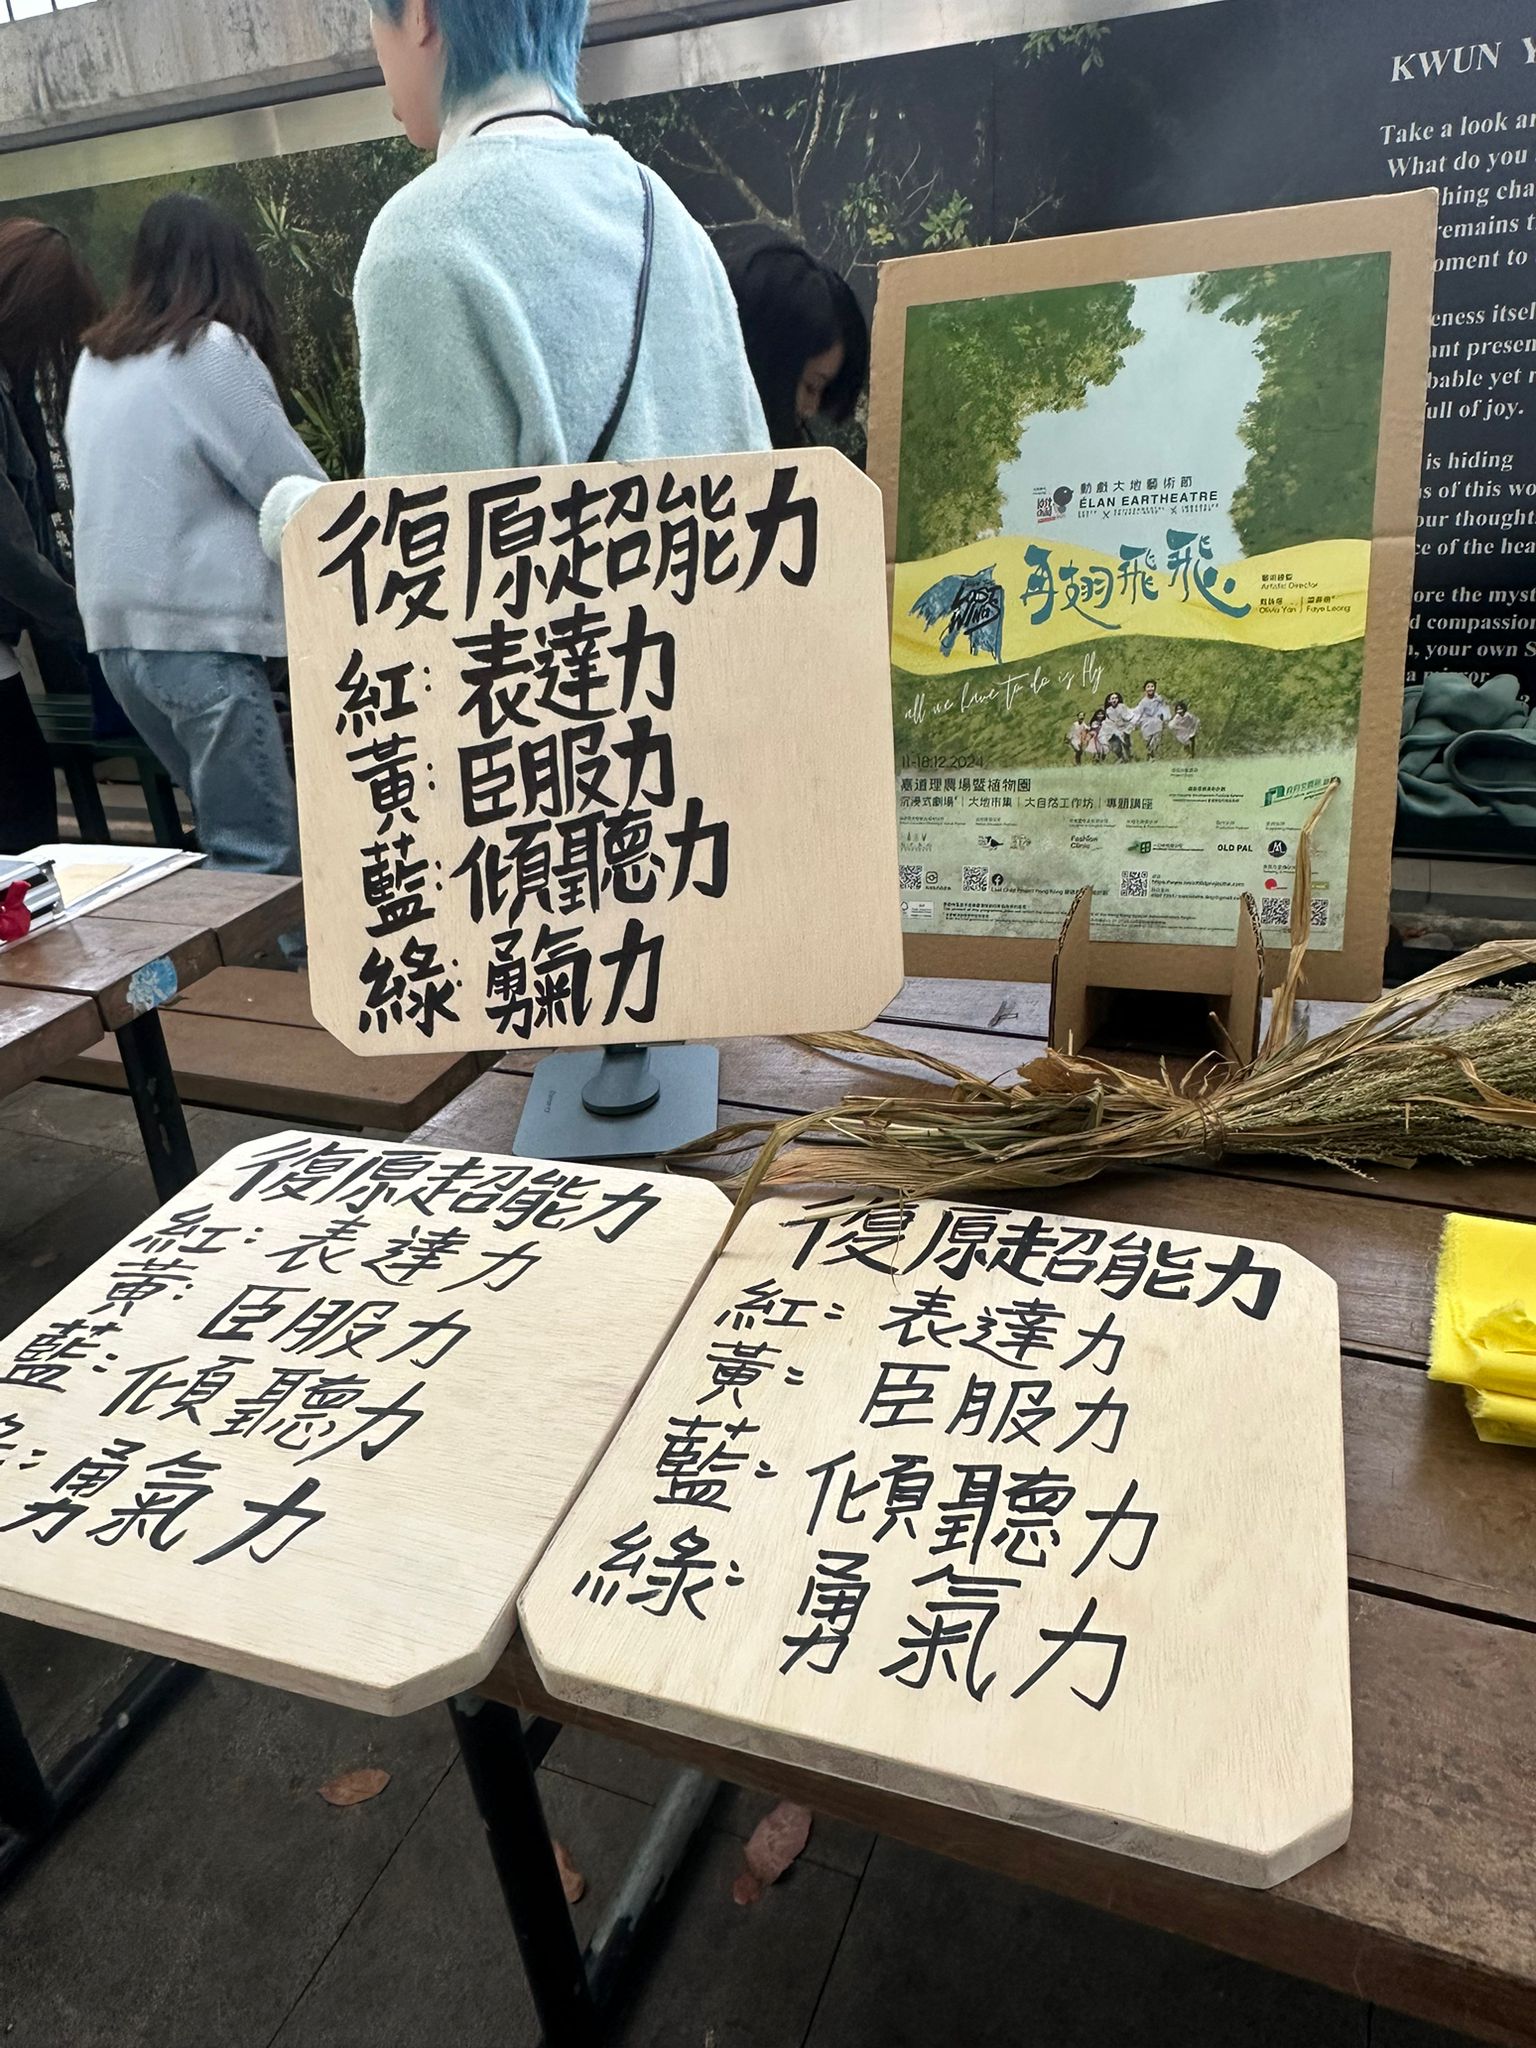 KWUN Y
Take a look ar
What do you
hing cha
remains t
oment to
eness itsel
ant presen
bable yet r
ull of joy.
is hiding
s of this wo
our thought
ce of the hea
ore the myst
d compassion
, your own S
a mirror
復原超能力
紅：表達力
黃：臣服力
藍：傾聽力
綠：勇氣力
動戲大地藝術節
ÉLAN EARTHEATRE
LOST WINGS
再翅飛飛
藝術總監
Artistic Director
Olivia Yan | Faye Leong
all we have to do is fly
11-18.12.2024
嘉道理農場暨植物園
沉浸式劇場 | 大地市集 | 大自然工作坊 | 專題講座
Fashion Clinic
OLD PAL
復原超能力
紅：表達力
黃：臣服力
藍：傾聽力
勇氣力
復原超能力
紅：表達力
黃：臣服力
藍：傾聽力
綠：勇氣力